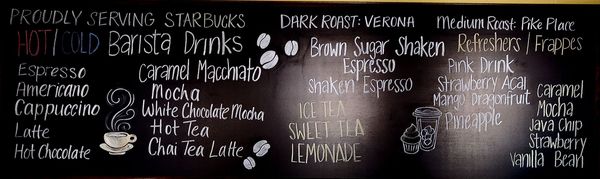 PROUDLY SERVING STARBUCKS
HOT/COLD Barista Drinks
Espresso
Americano
Cappuccino
Latte
Hot Chocolate
Caramel Macchiato
Mocha
White Chocolate Mocha
Hot Tea
Chai Tea Latte
DARK ROAST: VERONA
Brown Sugar Shaken
Espresso
Shaken Espresso
ICE TEA
SWEET TEA
LEMONADE
Medium Roast: Pike Place
Refreshers / Frappes
Pink Drink
Strawberry Acai
Mango Dragonfruit
Pineapple
Caramel
Mocha
Java Chip
Strawberry
Vanilla Bean